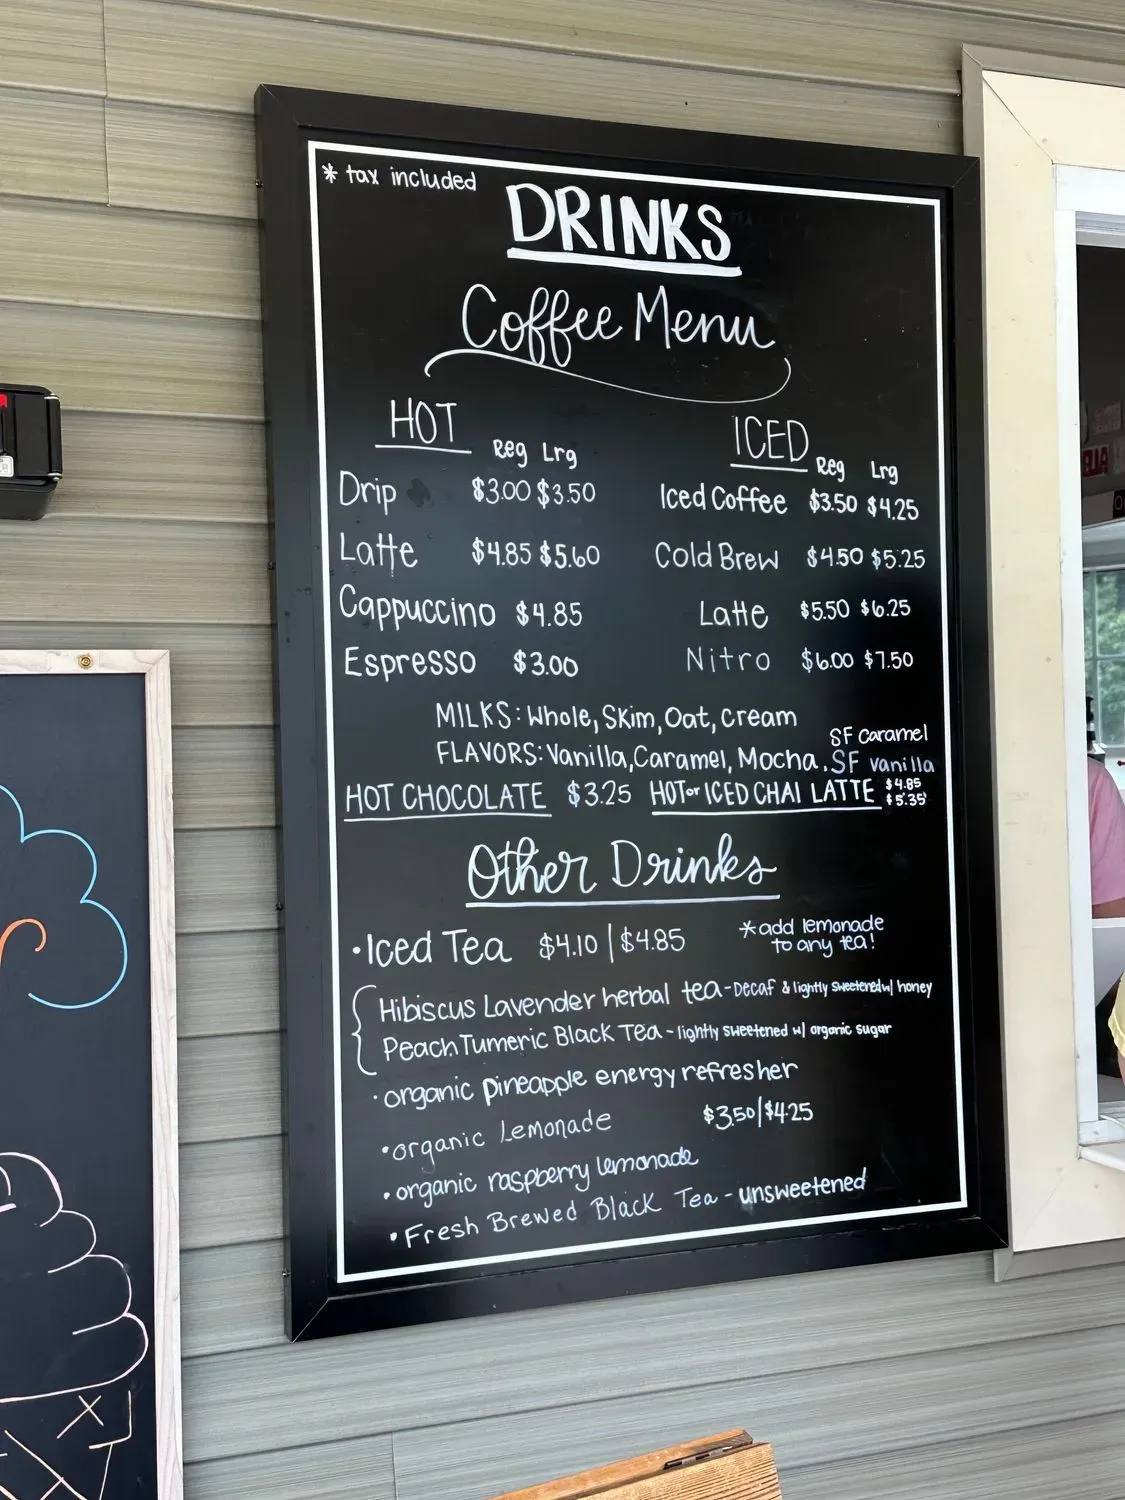 * tax included
DRINKS
Coffee Menu
HOT
Reg Lrg
Drip $3.00 $3.50
Latte $4.85 $5.60
Cappuccino $4.85
Espresso $3.00
ICED
Reg Lrg
Iced Coffee $3.50 $4.25
Cold Brew $4.50 $5.25
Latte $5.50 $6.25
Nitro $6.00 $7.50
MILKS: Whole, Skim, Oat, cream
FLAVORS: Vanilla, Caramel, Mocha, SF vanilla
SF caramel
HOT CHOCOLATE $3.25
HOT or ICED CHAI LATTE $4.85
$5.35
Other Drinks
•Iced Tea $4.10 | $4.85
*add lemonade
to any tea!
Hibiscus Lavender herbal tea - Decaf & lightly sweetened w/ honey
Peach Turmeric Black Tea - lightly sweetened w/ organic sugar
•organic pineapple energy refresher
•organic Lemonade $3.50 | $4.25
•organic raspberry lemonade
•Fresh Brewed Black Tea - unsweetened